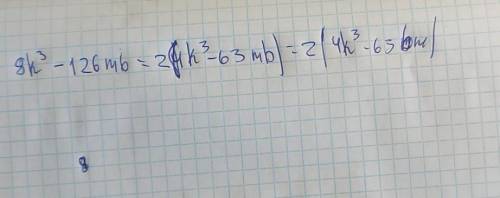 8k³ - 126mb = 2(4k³ - 63mb) = 2(4k³ - 63bm)
8